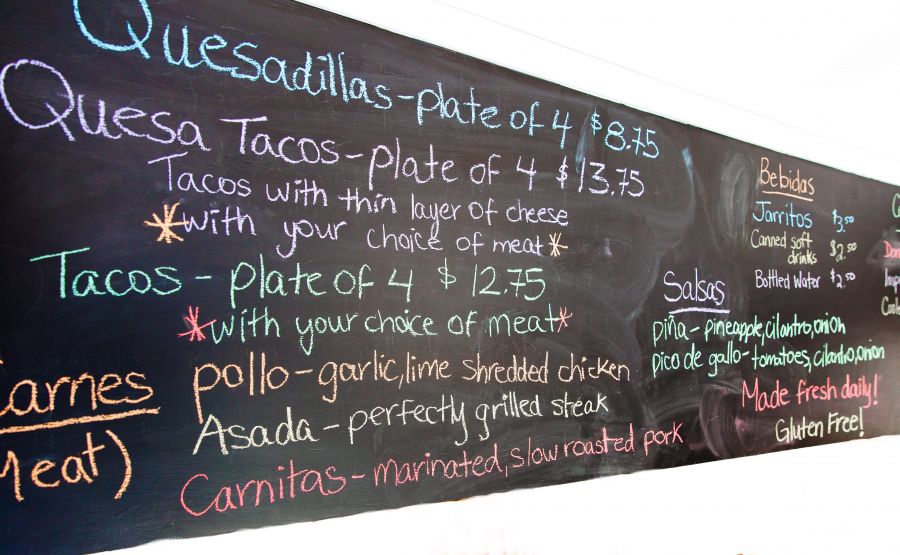 Quesadillas - plate of 4 $8.75
Quesa Tacos - plate of 4 $13.75
Tacos with thin layer of cheese
*with your choice of meat*
Tacos - plate of 4 $12.75
*with your choice of meat*
Carnes
(Meat)
pollo - garlic, lime shredded chicken
Asada - perfectly grilled steak
Carnitas - marinated, slow roasted pork
Salsas
piña - pineapple, cilantro, onion
pico de gallo - tomatoes, cilantro, onion
Made fresh daily!
Gluten Free!
Bebidas
Jarritos $3.50
Canned soft
drinks $2.50
Bottled Water $2.50